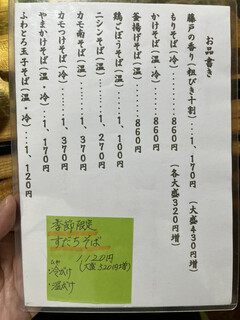 お品書き
藤戸の香り(粗びき十割)‥‥1,170円(大盛430円増)
もりそば(冷)‥‥860円
かけそば(温)‥‥860円(各大盛320円増)
釜揚げそば(温)‥‥860円
鶏ごぼうそば(温)‥‥1,100円
ニシンそば(温)‥‥1,270円
カモ南そば(温)‥‥1,370円
カモつけそば(冷)‥‥1,370円
やまかけそば(温・冷)‥‥1,170円
ふわとろ玉子そば(温・冷)‥‥1,120円
季節限定
すだちそば
1,120円
(大盛320円増)
・冷かけ
・温かけ